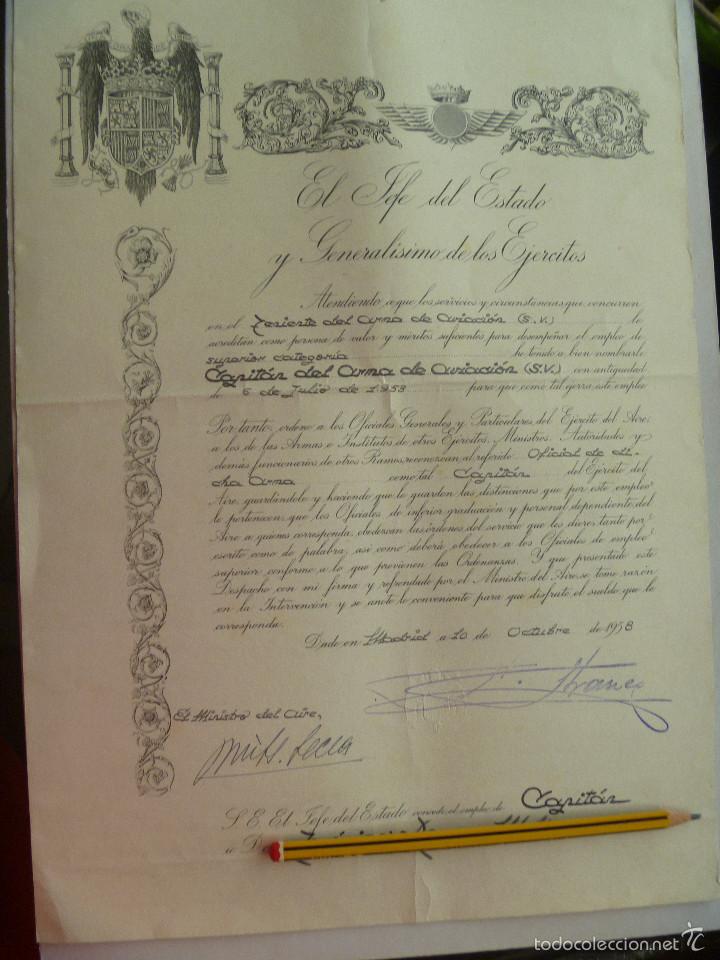 El Jefe del Estado
y Generalisimo de los Ejercitos
Atendiendo a que los servicios y circunstancias que concurren
en el Teniente del Arma de Aviación (S.V.) le
acreditan como persona de valor y méritos suficientes para desempeñar el empleo de
superior categoria he tenido a bien nombrarle
Capitán del Arma de Aviación (S.V.) con antigüedad
de 6 de Julio de 1.958 para que como tal ejerza este empleo
Por tanto, ordeno a los Oficiales Generales y Particulares del Ejército del Aire;
a los de las Armas e Institutos de otros Ejércitos, Ministros, Autoridades y
demás funcionarios de otros Ramos, reconozcan al referido Oficial de di-
cha Arma como tal Capitán del Ejército del
Aire, guardándole y haciendo que le guarden las distinciones que por este empleo
le pertenecen; que los Oficiales de inferior graduación y personal dependiente del
Aire a quienes corresponda, obedezcan las órdenes del servicio que les dieres tanto por
escrito como de palabra, así como deberá obedecer a los Oficiales de empleo
superior conforme a lo que previenen las Ordenanzas. Y que presentado este
Despacho con mi firma y refrendado por el Ministro del Aire, se tome razón
en la Intervención y se anote lo conveniente para que disfrute el sueldo que le
corresponda.
Dado en Madrid a 10 de Octubre de 1958
El Ministro del Aire,
S.E. El Jefe del Estado concede el empleo de Capitán
a D.
todocoleccion.net tc